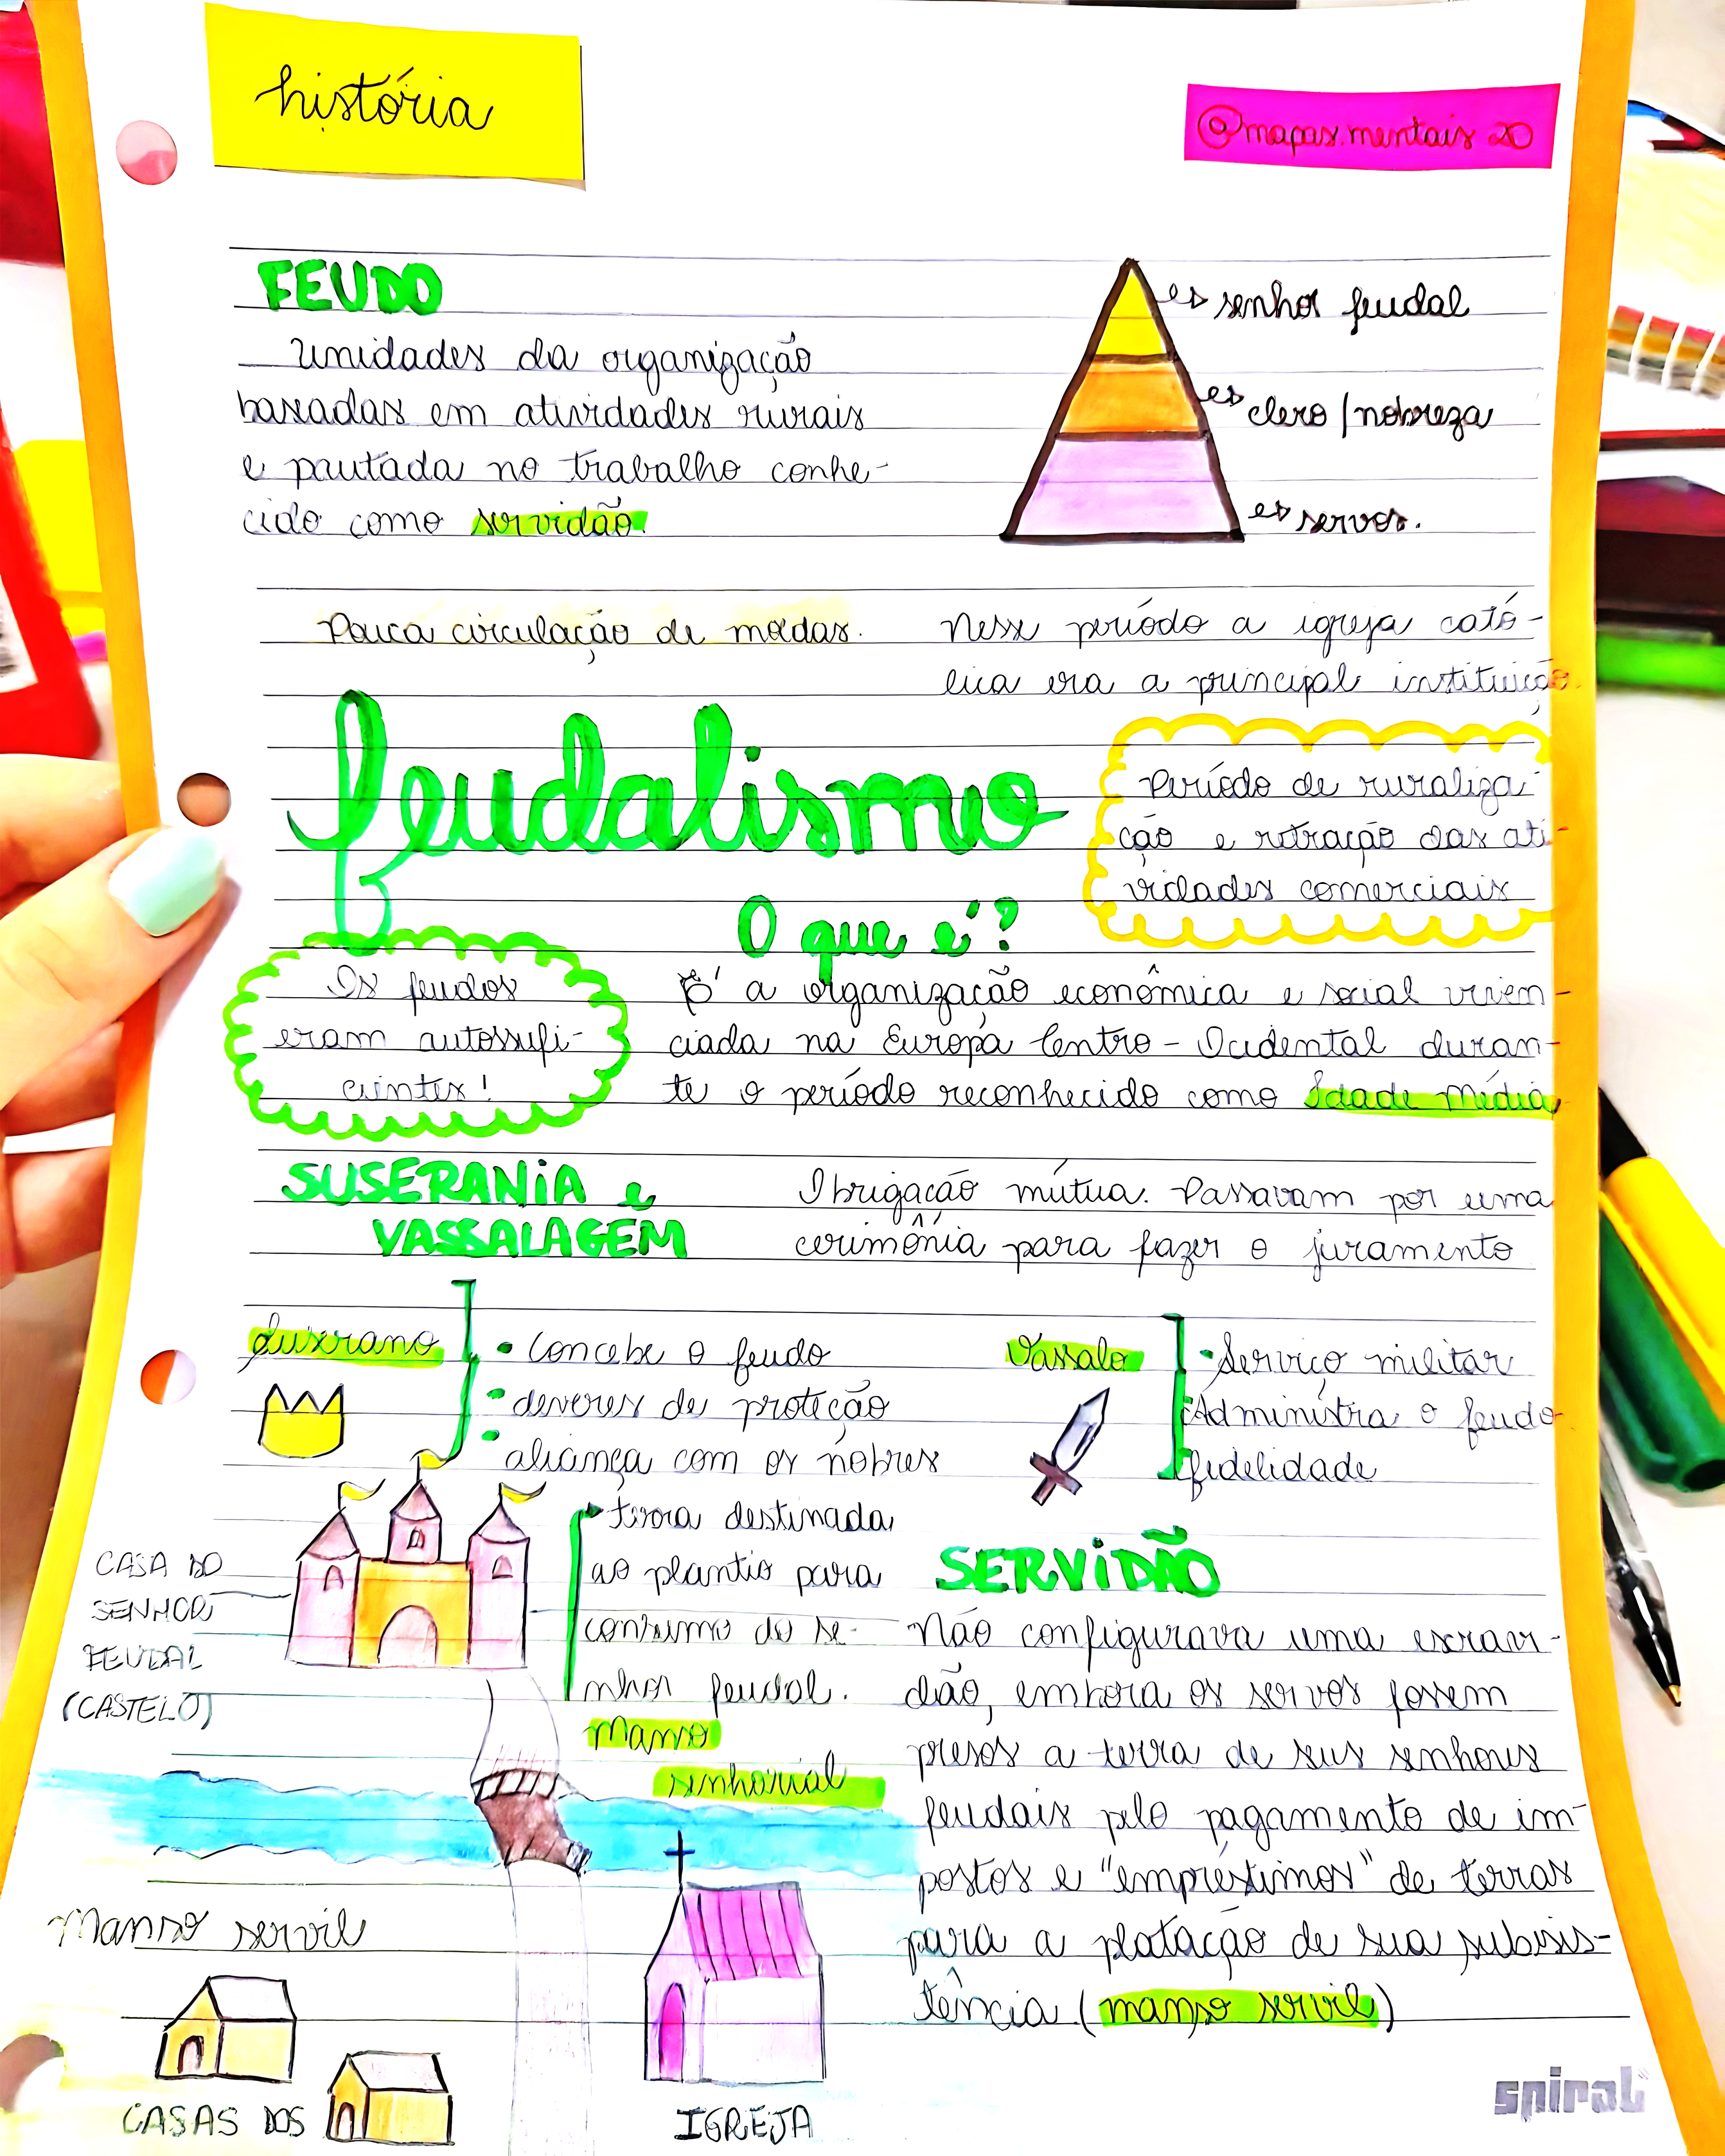 história
@mapas.mentais20
FEUDO
Unidades da organização
baseadas em atividades rurais
e pautada no trabalho conhe-
cido como servidão.
senhor feudal
clero/nobreza
servos.
Pouca circulação de moedas.
Nesse período a igreja cató-
lica era a principal instituição.
feudalismo
Período de ruraliza-
ção e retração das ati-
vidades comerciais
O que é?
Os feudos
eram autossufi-
cientes!
É a organização econômica e social viven-
ciada na Europa Centro-Ocidental duran-
te o período reconhecido como Idade Média
SUSERANiA e
VASSALAGEM
Obrigação mútua. Passavam por uma
cerimônia para fazer o juramento
Suserano
• Concebe o feudo
• deveres de proteção
• aliança com os nobres
Vassalo
• Serviço militar
Administra o feudo
fidelidade
CASA DO
SENHOR
FEUDAL
(CASTELO)
terra destinada
ao plantio para
consumo do se-
nhor feudal.
Manso
senhorial
SERViDÃO
Não configurava uma escravi-
dão, embora os servos fossem
presos a terra de seus senhores
feudais pelo pagamento de im-
postos e "empréstimos" de terras
para a platação de sua subsis-
tência (manso servil)
Manso servil
CASAS DOS
IGREJA
spiral